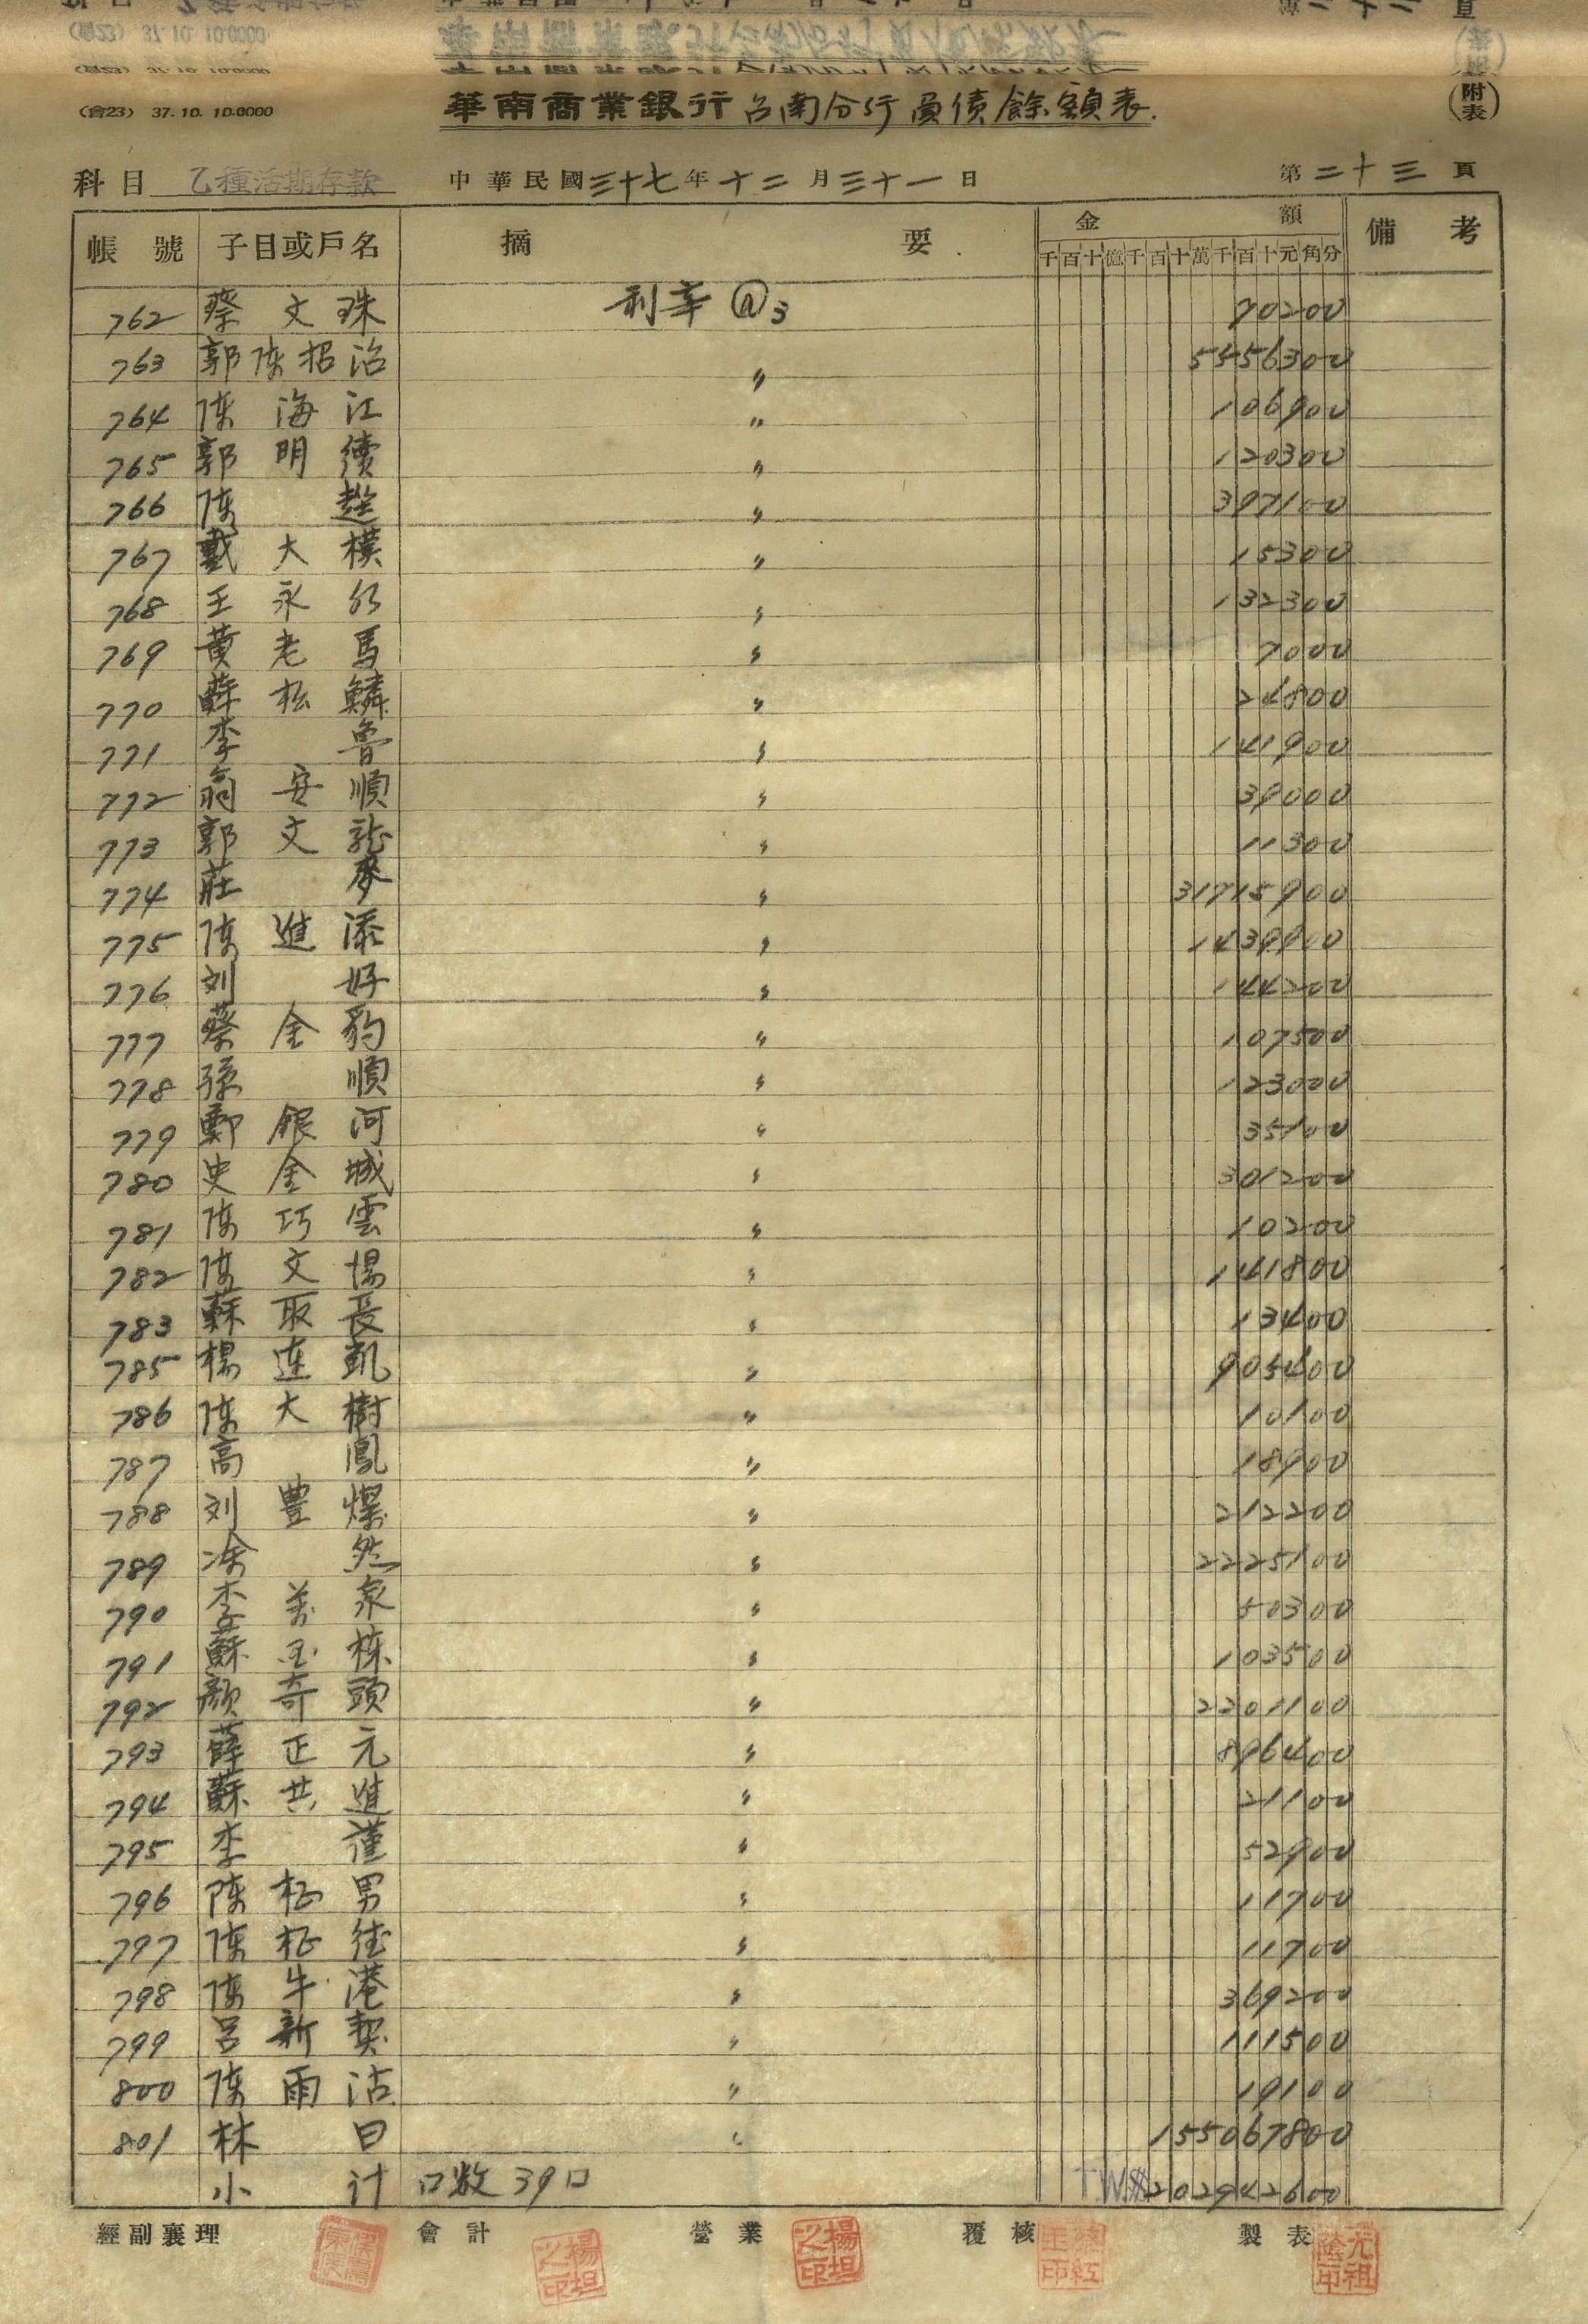 (會23) 37.10.10.0000
華南商業銀行台南分行負債餘額表
(附表)
科目 乙種活期存款 中華民國三十七年十二月三十一日 第二十三頁
帳號 子目或戶名 摘要 金額 備考
千百十億千百十萬千百十元角分
762 蔡文珠 利率@3 70200
763 郭陳招治 〃 5456300
764 陳海江 〃 106900
765 郭明續 〃 120300
766 陳趁 〃 397100
767 戴大樸 〃 15300
768 王永 〃 132300
769 黃老馬 〃 7000
770 蘇松鱗 〃 24800
771 李魯 〃 141900
772 翁安順 〃 39000
773 郭文龍 〃 11300
774 莊麥 〃 31715900
775 陳進添 〃 1439900
776 刘好 〃 144200
777 蔡金豹 〃 107500
778 孫順 〃 123000
779 鄭銀河 〃 35100
780 史金城 〃 301200
781 陳巧雲 〃 10200
782 陳文場 〃 141800
783 蘇取長 〃 13400
785 楊連凱 〃 905400
786 陳大樹 〃 10100
787 高鳳 〃 18900
788 刘豊燦 〃 212200
789 涂然 〃 2225100
790 李萬泉 〃 50300
791 蘇玉棟 〃 103500
792 顏奇頭 〃 2201100
793 薛正元 〃 896400
794 蘇共進 〃 21100
795 李僅 〃 52900
796 陳柾男 〃 11700
797 陳柾徳 〃 11700
798 陳牛港 〃 369200
799 呂新契 〃 111500
800 陳雨沽 〃 19100
801 林曰 〃 155067800
小計 口数39口 TW$202942600
經副襄理 會計 營業 覆核 製表
楊坦之印
楊坦之印